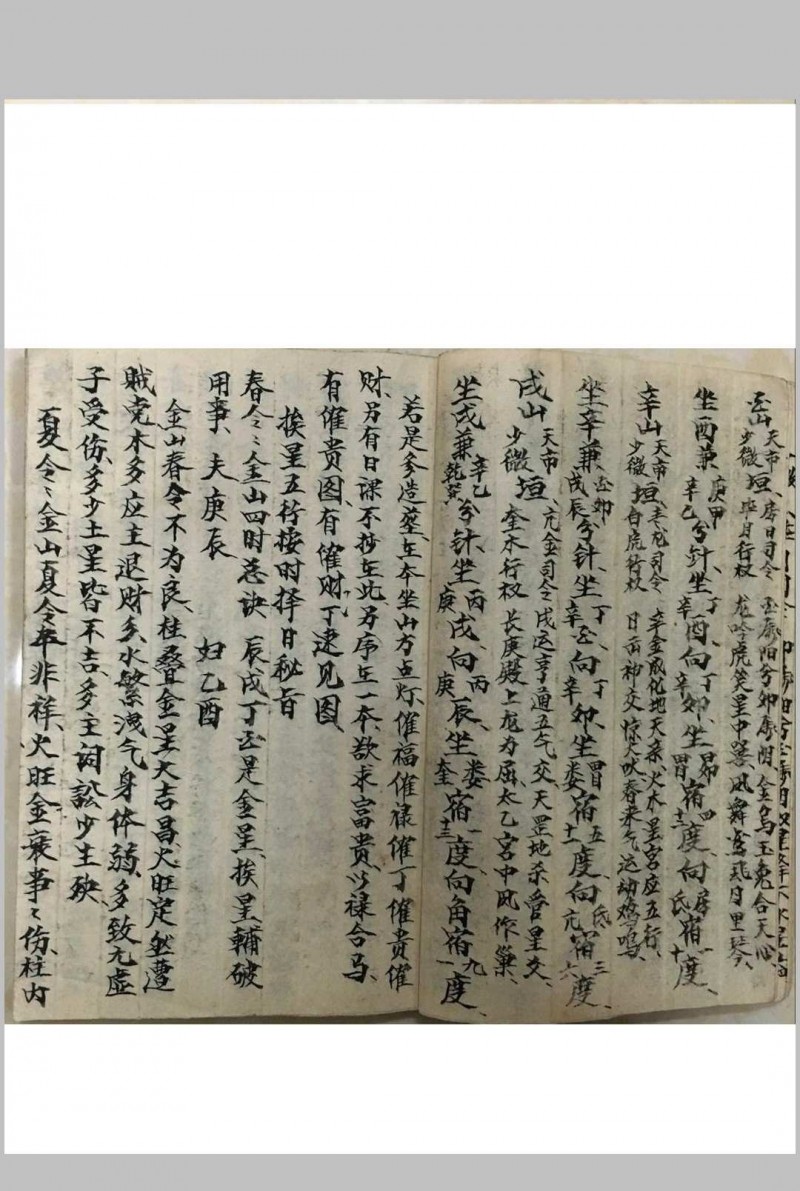 酉山天市少微垣、房日司令毕月行权 酉属阳兮卯属阴、金乌玉兔合天心、龙吟虎笑星中器、凤舞鸾飞月里琴、
坐酉兼庚甲辛乙分针、坐丁辛酉向丁辛卯、坐昴胃宿四十三度、向房氐宿一十度、
辛山天市少微垣、苍龙司令白虎行权 辛金成化地天亲、火木星宫应五行、日西神交惊犬吠春来气运动鸡鸣、
坐辛兼酉卯戌辰分针、坐丁辛酉向丁辛卯坐胃娄宿五十二度、向氐亢宿三六度、
戌山天市少微垣 亢金司令奎木行权 戌运亨通五气交、天罡地杀会星爻、长庚殿上龙为屈、太乙宫中凤作巢、
坐戌兼辛乙乾巽分针、坐丙庚戌、向丙庚辰、坐娄奎宿一十三度、向角宿九一度、
若是多造葬、在本坐山方点灯、催福催禄催丁催贵催
财、另有日课不抄在此、另序在一本、欲求富贵、以禄合马、
有催贵图、有催财丁速见图、
挨星五行按时择日秘旨
春令：金山四时总诀 辰戌丁酉是金星、挨星辅破
用事、夫庚辰 妇乙酉
金山春令不为良、柱叠金星大吉昌、火旺定然遭
贼克木多应主退财多、水繁洩气身体弱、多致尢虚
子受伤、多少土星皆不吉、多主词讼少主殃、
夏令：金山夏令年非祥、火旺金衰事〻伤、柱内